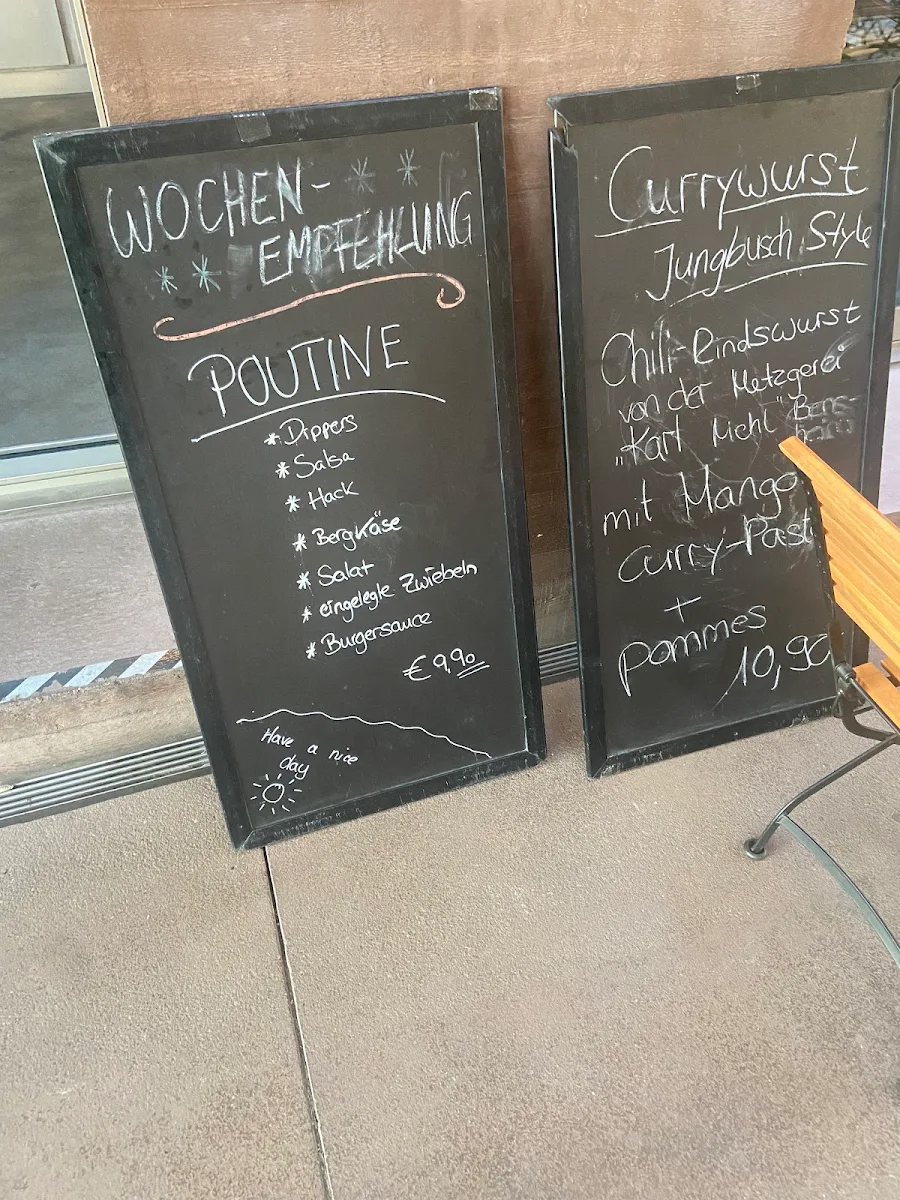 WOCHEN-
EMPFEHLUNG
POUTINE
* Dippers
* Salsa
* Hack
* Bergkäse
* Salat
* eingelegte Zwiebeln
* Burgersauce
€ 9,90
Have a nice
day
Currywurst
Jungbusch Style
Chili-Rindswurst
von der Metzgerei
"Karl
mit Mango
Curry-Past
+
Pommes
10,90